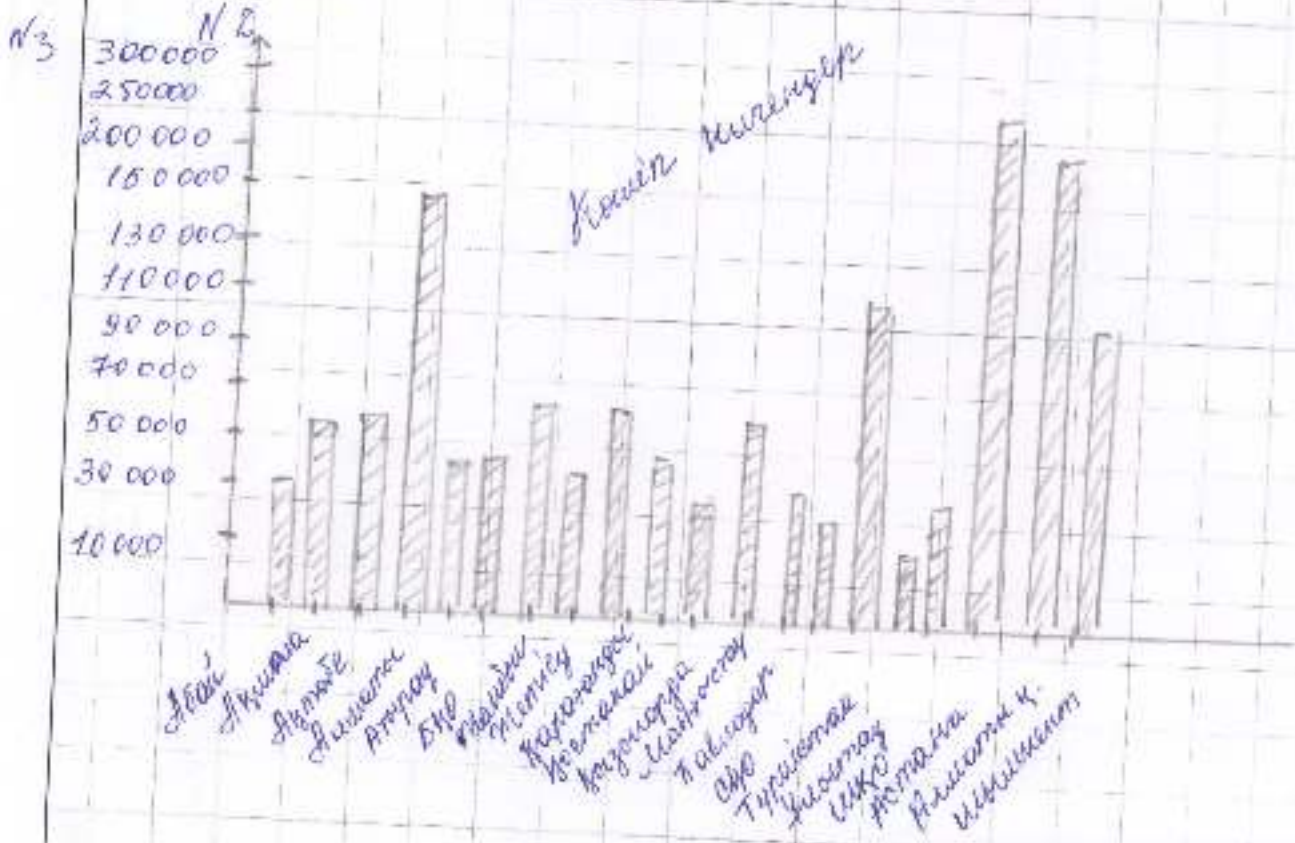 N3
N 2
300000
250000
200 000
150000
130 000
110000
90 000
70 000
50 000
30 000
10 000
Көшіп
Абай
Ақмола
Ақтөбе
Алматы
Атырау
БҚО
Жамбыл
Жетісу
Қарағанды
Қостанай
Қызылорда
Маңғыстау
Павлодар
СҚО
Түркістан
Ұлытау
ШҚО
Астана
Алматы қ.
Шымкент